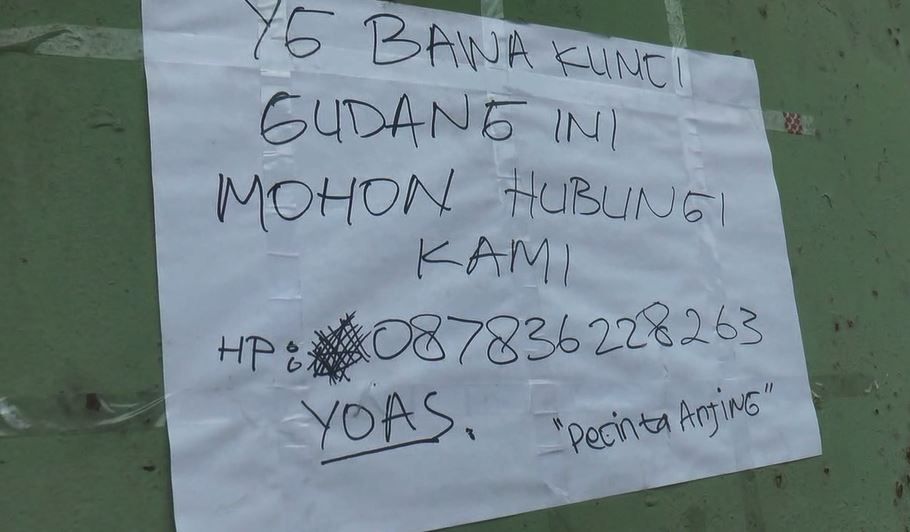 YG BAWA KUNCI
GUDANG INI
MOHON HUBUNGI
KAMI
HP: 087836228263
YOAS.
"PecintaAnjiNG"